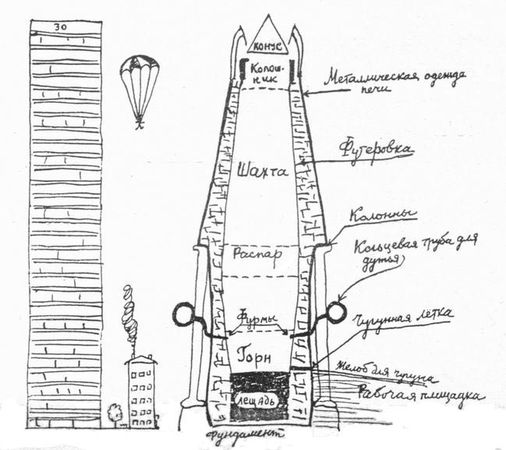 30
КОНУС
Колош-
ник
Металлическая одежда
печи
Футеровка
Шахта
Колонны
Кольцевая труба для
дутья
Распар
Фурмы
Чугунная лётка
Горн
Желоб для чугуна
Рабочая площадка
Лещадь
Фундамент